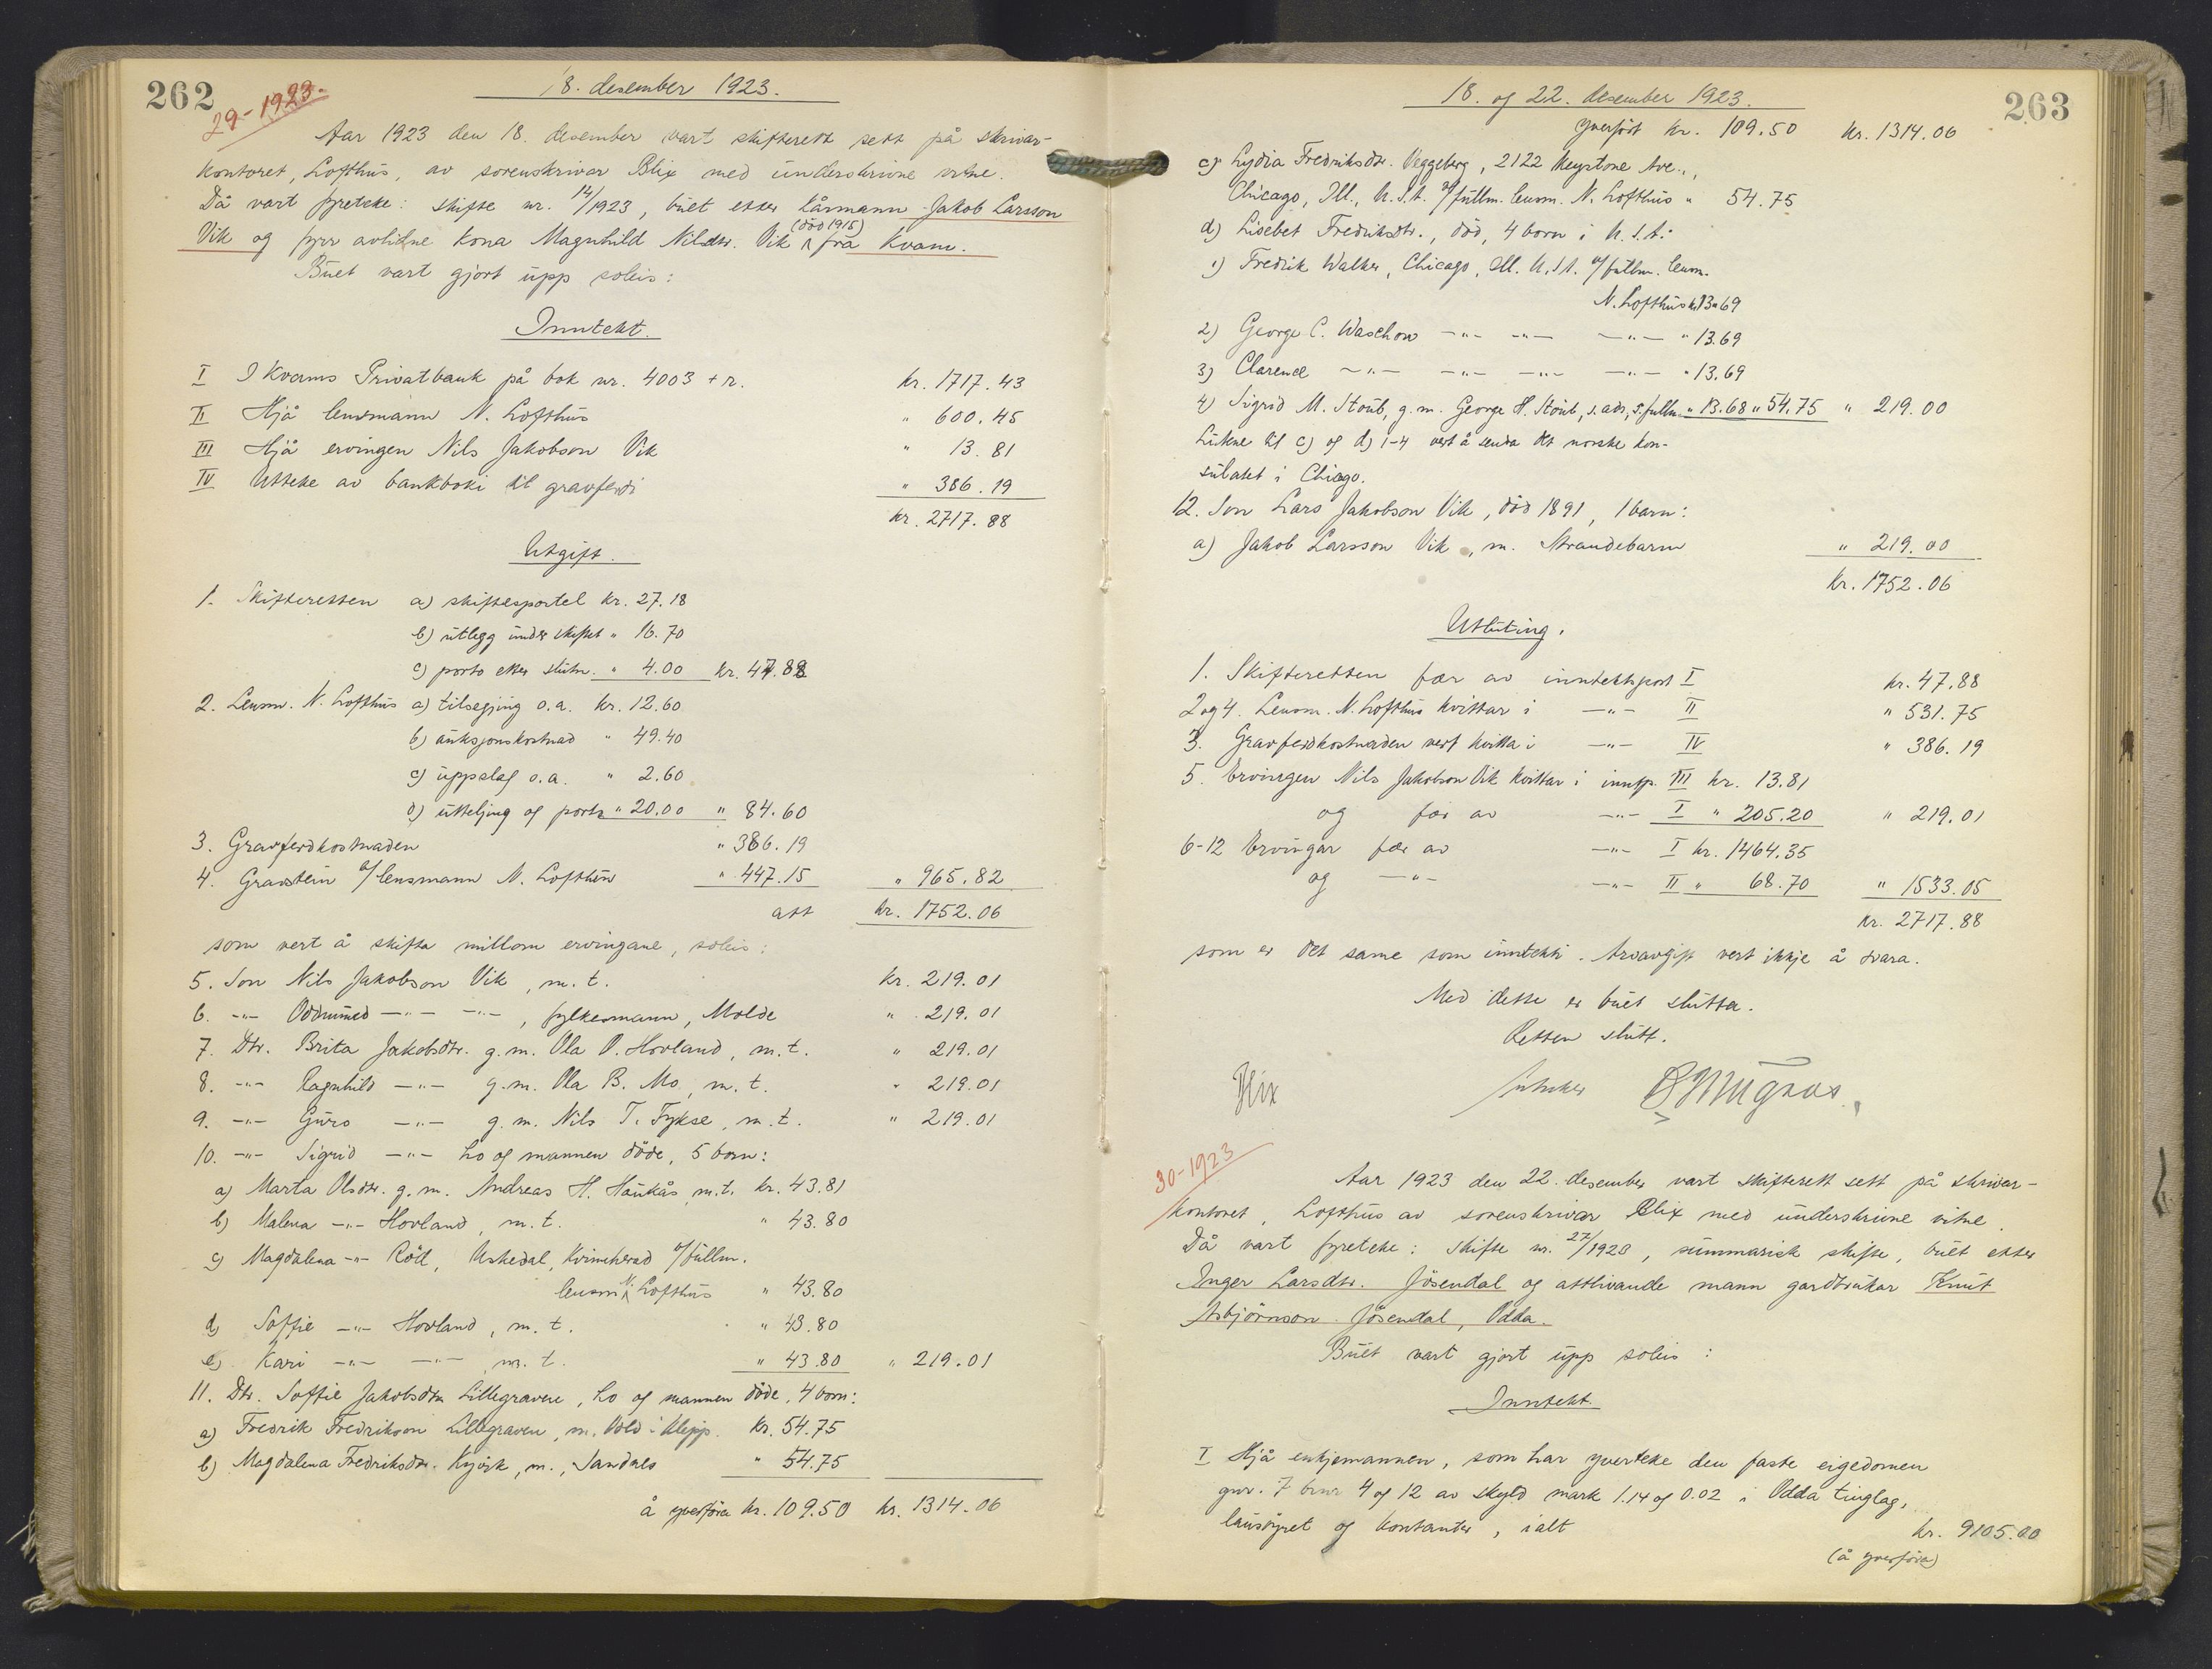 262
29-1923.
18. desember 1923.
Aar 1923 den 18. desember vart skifterett sett på skrivar-
kontoret, Lofthus, av sorenskrivar Blix med underskrivne vitne.
Då vart fyreteke: skifte nr. 14/1923, buet etter kårmann Jakob Larsson
Vik og fyrr avlidne kona Magnhild Nilsdtr. Vik (död 1915) frå Kvam.
Buet vart gjort upp soleis:
Inntekt.
I I Kvams Privatbank på bok nr. 4003 + r. kr. 1717.43
II Hjå lensmann N. Lofthus " 600.45
III Hjå ervingen Nils Jakobson Vik " 13.81
IV Utteke av bankboki til gravferdi " 386.19
kr. 2717.88
Utgift.
1. Skifteretten a) skiftesportel kr. 27.18
b) utlegg under skiftet " 16.70
c) porto etter slutn. " 4.00 kr. 47.88
2. Lensm. N. Lofthus a) tilsegjing o.a. kr. 12.60
b) auksjonskostnad " 49.40
c) uppslag o.a. " 2.60
d) utteljing og porto " 20.00 " 84.60
3. Gravferdkostnaden " 386.19
4. Gravstein a/ lensmann N. Lofthus " 447.15 " 965.82
att kr. 1752.06
som vert å skifta millom ervingane, soleis:
5. Son Nils Jakobson Vik, m. t. kr. 219.01
6. -"- Oddmund -"- -"-, fylkesmann, Molde " 219.01
7. Dtr. Brita Jakobsdtr. g. m. Ola O. Hovland, m. t. " 219.01
8. -"- Ragnhild -"- g. m. Ola B. Mo, m. t. " 219.01
9. -"- Guro -"- g. m. Nils T. Fykse, m. t. " 219.01
10. -"- Sigrid -"- ho og mannen döde, 5 born:
a) Marta Olsdtr. g. m. Andreas H. Haukås, m. t. kr. 43.81
b) Malena -"- Hovland, m. t. " 43.80
c) Magdalena -"- Röd, Uskedal, Kvinnherad a/ fullm.
lensm. N. Lofthus " 43.80
d) Soffie -"- Hovland, m. t. " 43.80
e) Kari -"- -"- m. t. " 43.80 " 219.01
11. Dtr. Soffie Jakobsdtr. Lillegraven, ho og mannen döde, 4 born:
a) Fredrik Fredrikson Lillegraven, m. Vold i Klepp. kr. 54.75
b) Magdalena Fredriksdtr. Kyvik, m., Sandnes " 54.75
å yverföra kr. 109.50 kr. 1314.06
263
18. og 22. desember 1923.
yverfört kr. 109.50 kr. 1314.06
c) Lydia Fredriksdtr. Veggeberg, 2122 Keystone Ave.,
Chicago, Ill., U.S.A. a/ fullm. lensm. N. Lofthus " 54.75
d) Lisebet Fredriksdtr., död, 4 born i U.S.A.:
1) Fredrik Walker, Chicago, Ill. U.S.A. a/ fullm. lensm.
N. Lofthus kr. 13.69
2) George C. Waschow -"- -"- -"- " 13.69
3) Clarence -"- -"- -"- -"- " 13.69
4) Sigrid M. Stoub, g. m. George H. Stoub, s. adr, s. fullm. " 13.68 " 54.75 " 219.00
Lutene til c) og d) 1-4 vert å senda det norske kon-
sulatet i Chicago.
12. Son Lars Jakobson Vik, död 1891, 1 barn:
a) Jakob Larsson Vik, m. Strandebarm " 219.00
kr. 1752.06
Utluting.
1. Skifteretten fær av inntektspost I kr. 47.88
2 og 4. Lensm. N. Lofthus kvittar i -"- II " 531.75
3. Gravferdkostnaden vert kvitta i -"- IV " 386.19
5. Ervingen Nils Jakobson Vik kvittar i inntp. III kr. 13.81
og fær av -"- I " 205.20 " 219.01
6-12 Ervingar fær av -"- I kr. 1464.35
og -"- -"- II " 68.70 " 1533.05
kr. 2717.88
som er det same som inntekti. Arvavgift vert ikkje å svara.
Med dette er buet slutta.
Retten slutt.
Blix
30-1923
Aar 1923 den 22. desember vart skifterett sett på skrivar-
kontoret, Lofthus av sorenskrivar Blix med underskrivne vitne.
Då vart fyreteke: Skifte nr. 27/1923, summarisk skifte, buet etter
Inger Larsdtr. Jösendal og attlivande mann gardbrukar Knut
Asbjörnson Jösendal, Odda.
Buet vart gjort upp soleis:
Inntekt.
I Hjå enkjemannen, som har yverteke den faste eigedomen
gnr. 7 bnr 4 og 12 av skyld mark 1.14 og 0.02 i Odda tinglag,
lausöyret og kontanter, ialt kr. 9105.00
(å yverföra)